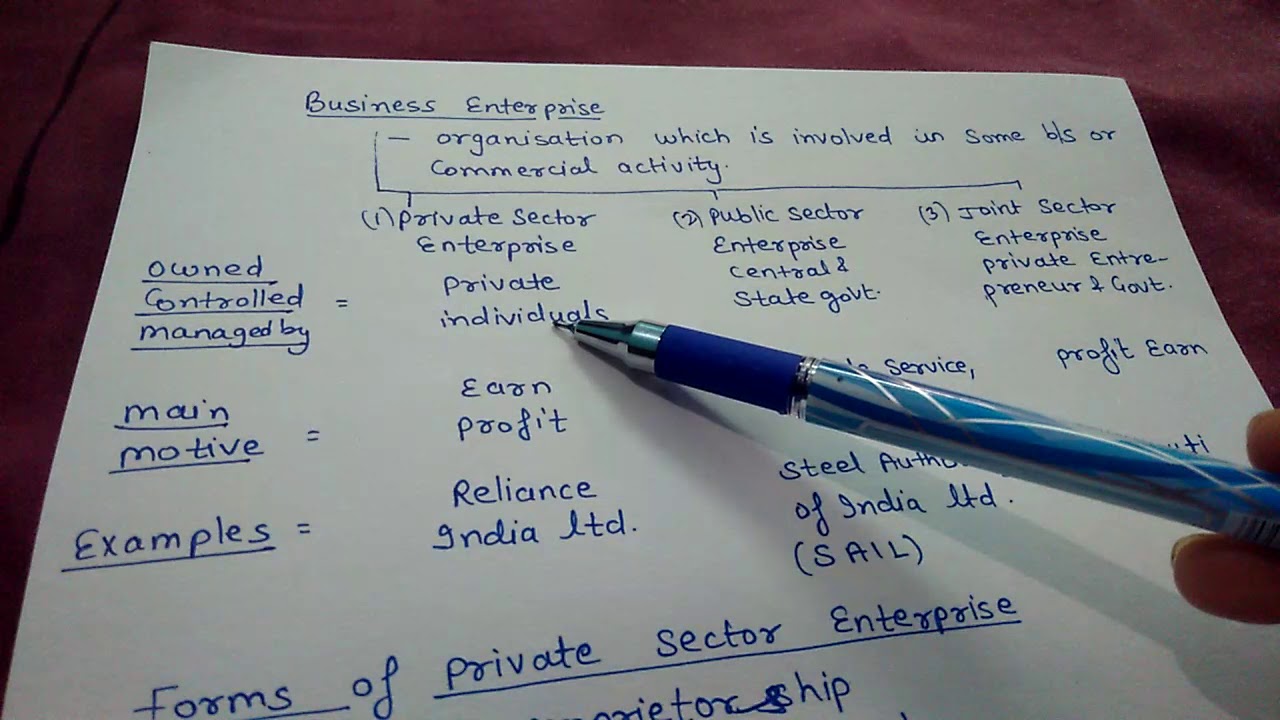 Business Enterprise
– organisation which is involved in some b/s or
Commercial activity.
(1) Private Sector
Enterprise
(2) Public Sector
Enterprise
(3) Joint Sector
Enterprise
owned
Controlled
managed by =
private
individuals
central &
State govt.
private Entre-
preneur & Govt.
main
motive =
Earn
profit
Service,
profit Earn
Examples =
Reliance
India ltd.
Steel
of India ltd.
(SAIL)
Forms of Private Sector Enterprise